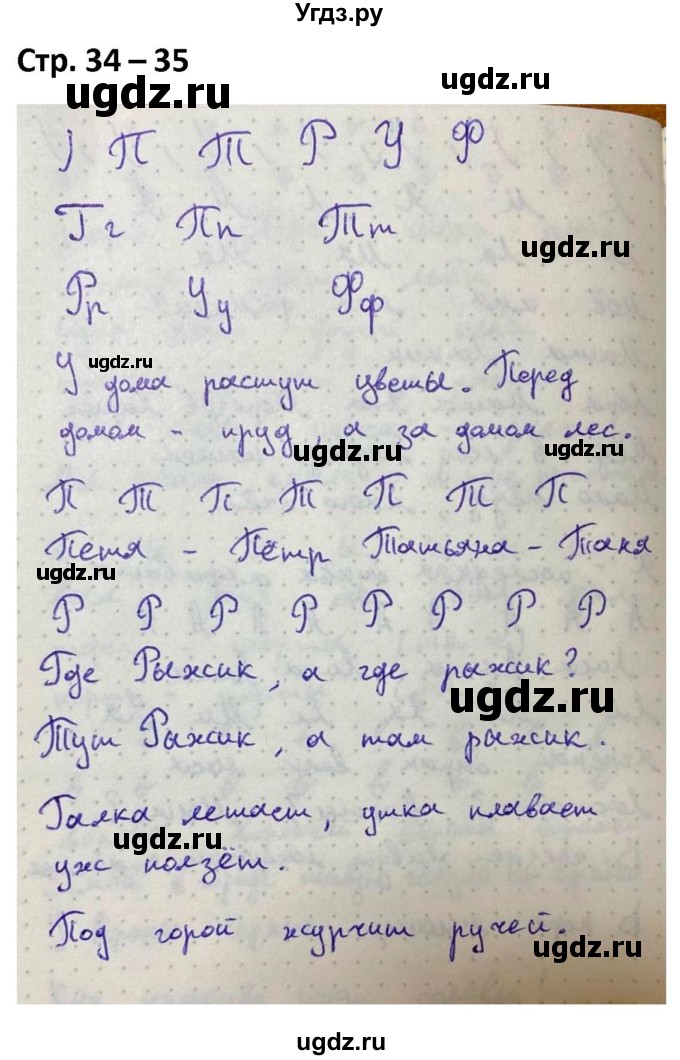 Угдз.ру
Стр. 34 – 35
ugdz.ru
ugdz.ru
П Т Р У Ф
Гг Пп Тт
ugdz.ru
Рр Уу Фф
ugdz.ru
У дома растут цветы. Перед
домом – пруд, а за домом лес.
ugdz.ru
ugdz.ru
П Т П Т П Т П
Петя – Пётр Татьяна – Таня
ugdz.ru
Р Р Р Р Р Р Р Р
Где Рыжик, а где рыжик?
ugdz.ru
Тут Рыжик, а там рыжик.
Галка летает, утка плавает
ugdz.ru
уж ползёт.
Под горой журчит ручей.
ugdz.ru
ugdz.ru